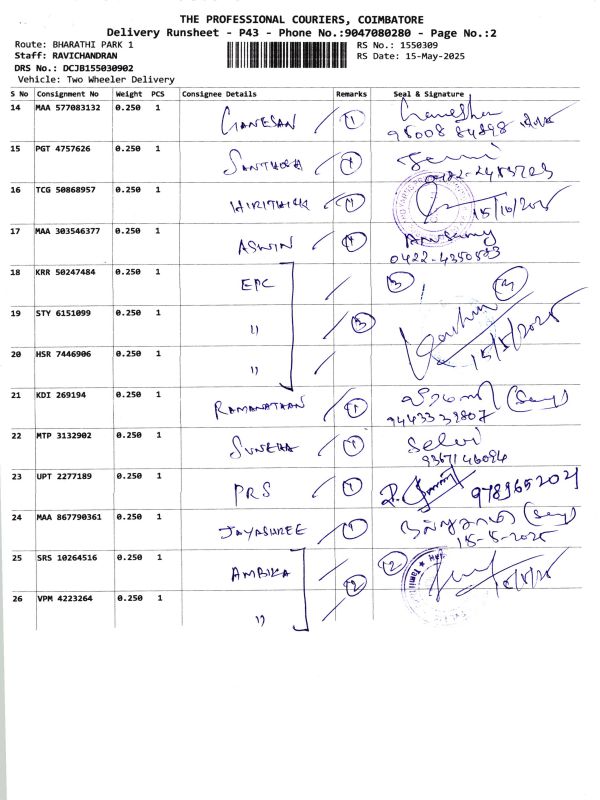 THE PROFESSIONAL COURIERS, COIMBATORE
Delivery Runsheet - P43 - Phone No.:9047080280 - Page No.:2
Route: BHARATHI PARK 1
RS No.: 1550309
Staff: RAVICHANDRAN
RS Date: 15-May-2025
DRS No.: DCJB155030902
Vehicle: Two Wheeler Delivery
S No Consignment No Weight PCS Consignee Details Remarks Seal & Signature
14 MAA 577083132 0.250 1 GANESAN 1 Ganeshan
15 PGT 4757626 0.250 1 SANTHOSH 1
0422-2485723
16 TCG 50868957 0.250 1 HIRITHICK 1 15/10/2025
17 MAA 303546377 0.250 1 ASWIN 1
0422-4350583
18 KRR 50247484 0.250 1 EPC 3 3
19 STY 6151099 0.250 1 " 3
15/5/2025
20 HSR 7446906 0.250 1 "
21 KDI 269194 0.250 1 RAMANATHAN 1
9443339807
22 MTP 3132902 0.250 1 SUNEHA 1 Selvi
23 UPT 2277189 0.250 1 PRS 1
24 MAA 867790361 0.250 1 JAYASHREE 1
15-5-2025
25 SRS 10264516 0.250 1 AMBIKA 2 2
26 VPM 4223264 0.250 1 "